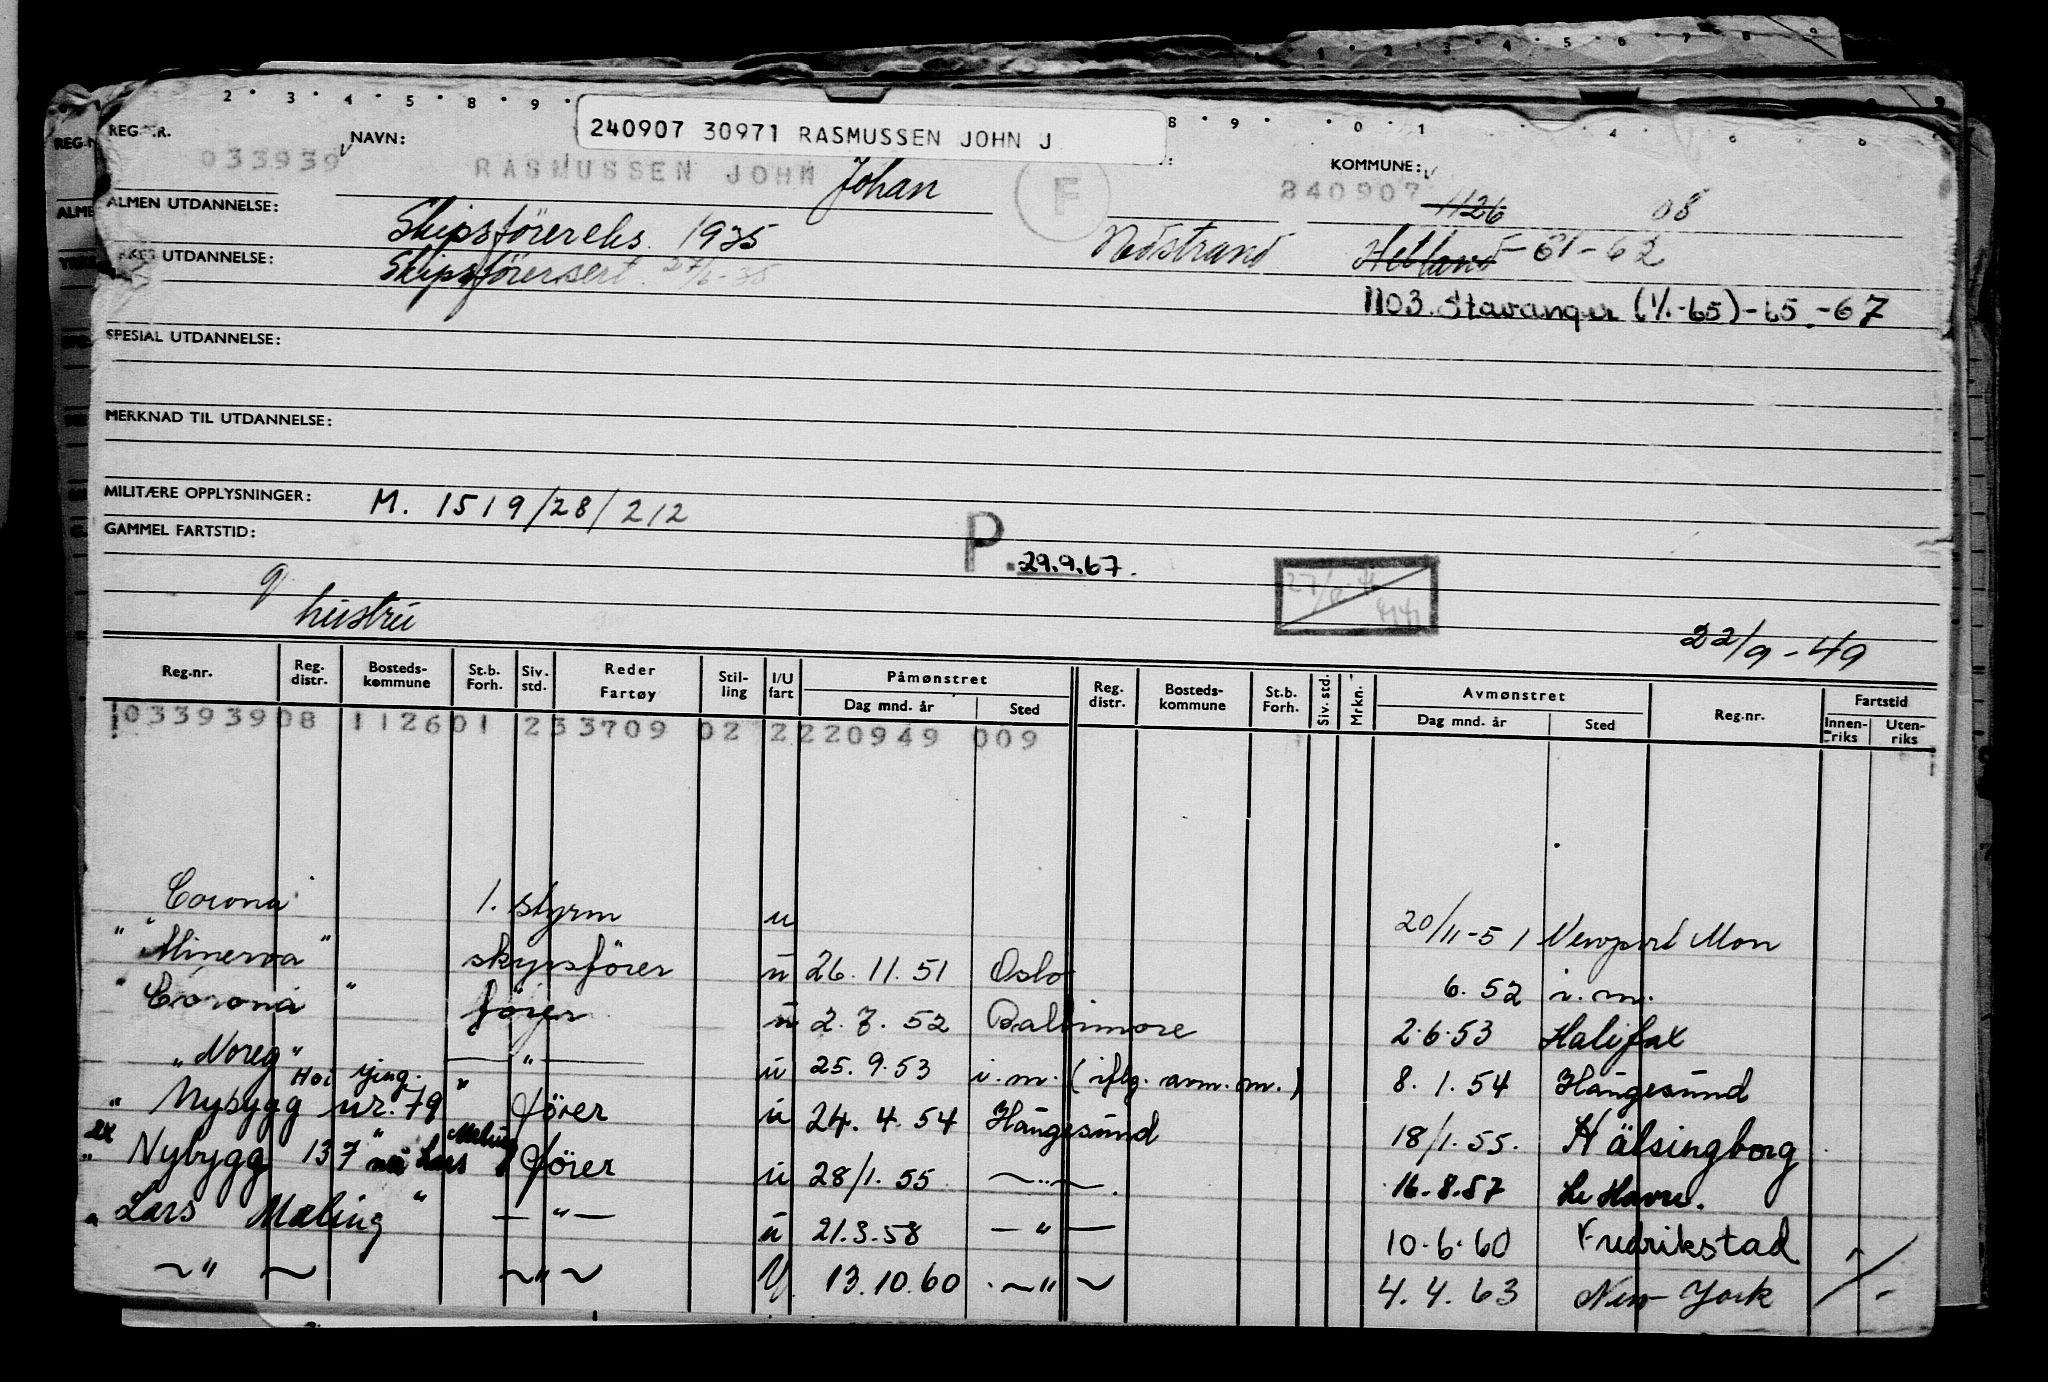 240907 30971 RASMUSSEN JOHN J
REG.NR. NAVN: KOMMUNE:
033939 RASMUSSEN JOHN Johan F 240907 1126 08
ALMEN UTDANNELSE: Skipsförereks. 1935 Nedstrand Hetland - 61-62
YRKES UTDANNELSE: Skipsförersert. 27/6-35
1103. Stavanger (1/1-65)-65.-67
SPESIAL UTDANNELSE:
MERKNAD TIL UTDANNELSE:
MILITÆRE OPPLYSNINGER: M. 1519/28/212
GAMMEL FARTSTID:
P. 29.9.67.
g hustru
22/9-49
Reg.nr. Reg. distr. Bosteds-kommune St.b. Forh. Siv. std. Reder Fartøy Stil-ling I/U fart Påmønstret Dag mnd. år Sted Reg. distr. Bosteds-kommune St.b. Forh. Siv. std. Mrkn. Avmønstret Dag mnd. år Sted Reg.nr. Fartstid Innen-riks Uten-riks
033939 08 1126 01 2 33709 02 2 220949 009
Corona 1. styrm u 20/11-51 Newport Mon
" Minerva " skipsförer u 26.11.51 Oslo 6.52 i.m.
" Corona " förer u 2.7.52 Baltimore 2.6.53 Halifax
"Noreg" — " — u 25.9.53 i.m. (iflg. avm. m.) 8.1.54 Haugesund
" Nybygg nr. 79 " förer u 24.4.54 Haugesund 18/1.55. Hälsingborg
" Nybygg 137 " nå Lars Meling förer u 28/1.55 — " — 16.8.57 Le Havre.
" Lars Meling " — " — u 21.3.58 — " — 10.6.60 Fredrikstad
— " — — " — U 13.10.60 — " — 4.4.63 New York